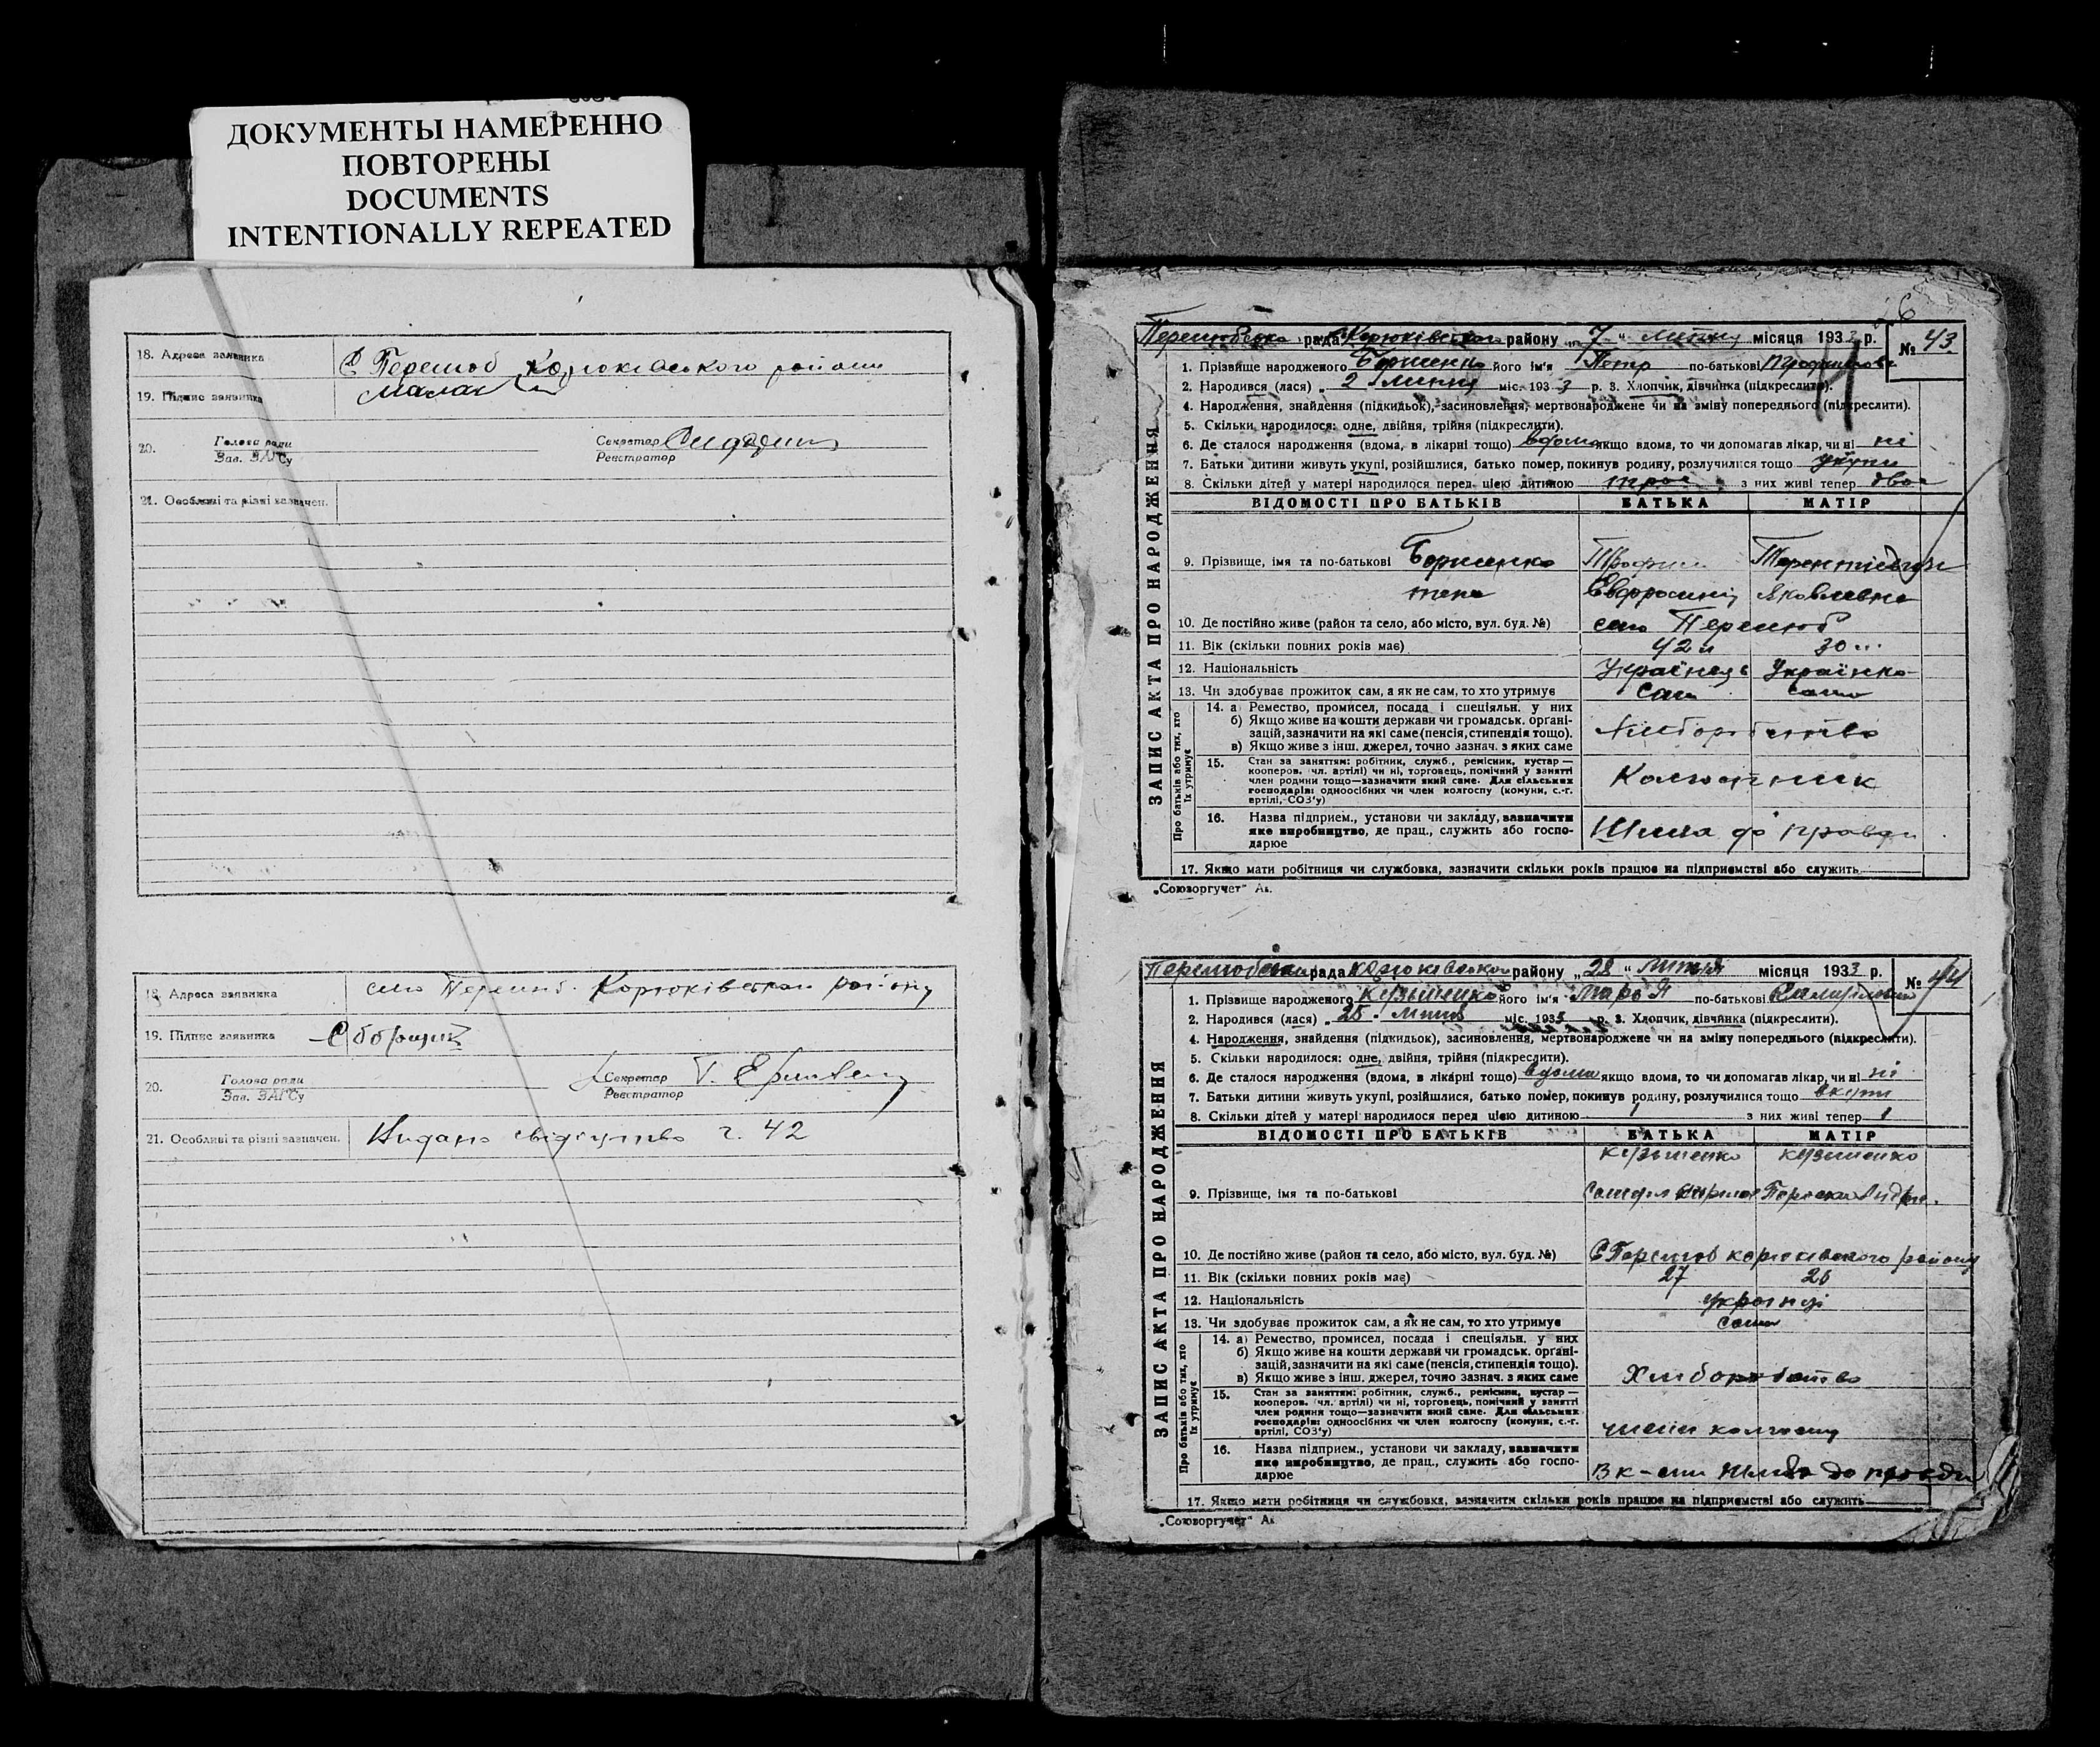 ДОКУМЕНТЫ НАМЕРЕННО
ПОВТОРЕНЫ
DOCUMENTS
INTENTIONALLY REPEATED
18. Адреса заявника С Перелюб Корюківського району
19. Підпис заявника
20. Голова ради Секретар
Зав. ЗАГСу Реєстратор
21. Особливі та різні зазначен.
18. Адреса заявника село Перелюб Корюківського району
19. Підпис заявника
20. Голова ради Секретар
Зав. ЗАГСу Реєстратор
21. Особливі та різні зазначен. Видано свідоцтво ч. 42
6
ЗАПИС АКТА ПРО НАРОДЖЕННЯ
Перелюбська рада Корюківського району „ 7 “ липня місяця 1933 р. № 43
1. Прізвище народженого його ім'я Петр по-батькові
2. Народився (лася) „ 2 липня міс. 193 3 р. 3. Хлопчик, дівчинка (підкреслити).
4. Народження, знайдення (підкидьок), засиновлення, мертвонароджене чи на зміну попереднього (підкреслити).
5. Скільки народилося: одне, двійня, трійня (підкреслити).
6. Де сталося народження (вдома, в лікарні тощо) вдома якщо вдома, то чи допомагав лікар, чи ні ні
7. Батьки дитини живуть укупі, розійшлися, батько помер, покинув родину, розлучилися тощо укупи
8. Скільки дітей у матері народилося перед цією дитиною троє з них живі тепер двоє
ВІДОМОСТІ ПРО БАТЬКІВ БАТЬКА МАТІР
9. Прізвище, імя та по-батькові Трофим
Яковлевна
10. Де постійно живе (район та село, або місто, вул. буд. №) село Перелюб
11. Вік (скільки повних років має) 42 30
12. Національність Українець Українка
13. Чи здобуває прожиток сам, а як не сам, то хто утримує сам сама
Про батьків або тих, хто їх утримує
14. а) Ремество, промисел, посада і спеціяльн. у них
б) Якщо живе на кошти держави чи громадськ. органі-
зацій, зазначити на які саме (пенсія, стипендія тощо). Хліборобство
в) Якщо живе з інш. джерел, точно зазнач. з яких саме
15. Стан за заняттям: робітник, служб., ремісник, кустар —
кооперов. (чл. артілі) чи ні, торговець, помічний у занятті
член родини тощо—зазначити який саме. Для сільських Колгоспник
господарів: одноосібних чи член колгоспу (комуни, с.-г.
артілі, СОЗ'у)
16. Назва підприєм., установи чи закладу, зазначити
яке виробництво, де прац., служить або госпо- Шлях до правди
дарює
17. Якщо мати робітниця чи службовка, зазначити скільки років працює на підприємстві або служить
„Союзоргучет“ Ак.
ЗАПИС АКТА ПРО НАРОДЖЕННЯ
рада Корюківського району „ 28 “ липня місяця 1933 р. № 44
1. Прізвище народженого Кузьменко його ім'я Марья по-батькові
2. Народився (лася) „ 25 липня міс. 1933 р. 3. Хлопчик, дівчинка (підкреслити).
4. Народження, знайдення (підкидьок), засиновлення, мертвонароджене чи на зміну попереднього (підкреслити).
5. Скільки народилося: одне, двійня, трійня (підкреслити).
6. Де сталося народження (вдома, в лікарні тощо) вдома якщо вдома, то чи допомагав лікар, чи ні ні
7. Батьки дитини живуть укупі, розійшлися, батько помер, покинув родину, розлучилися тощо вкупи
8. Скільки дітей у матері народилося перед цією дитиною 1 з них живі тепер 1
ВІДОМОСТІ ПРО БАТЬКІВ БАТЬКА МАТІР
Кузьменко Кузьменко
9. Прізвище, імя та по-батькові
10. Де постійно живе (район та село, або місто, вул. буд. №) С Перелюб Корюківського району
11. Вік (скільки повних років має) 27 26
12. Національність українці
13. Чи здобуває прожиток сам, а як не сам, то хто утримує сами
Про батьків або тих, хто їх утримує
14. а) Ремество, промисел, посада і спеціяльн. у них
б) Якщо живе на кошти держави чи громадськ. органі-
зацій, зазначити на які саме (пенсія, стипендія тощо).
в) Якщо живе з інш. джерел, точно зазнач. з яких саме Хліборобство
15. Стан за заняттям: робітник, служб., ремісник, кустар —
кооперов. (чл. артілі) чи ні, торговець, помічний у занятті
член родини тощо—зазначити який саме. Для сільських
господарів: одноосібних чи член колгоспу (комуни, с.-г.
артілі, СОЗ'у) член колгоспу
16. Назва підприєм., установи чи закладу, зазначити
яке виробництво, де прац., служить або госпо-
дарює Шлях до правди
17. Якщо мати робітниця чи службовка, зазначити скільки років працює на підприємстві або служить
„Союзоргучет“ Ак.